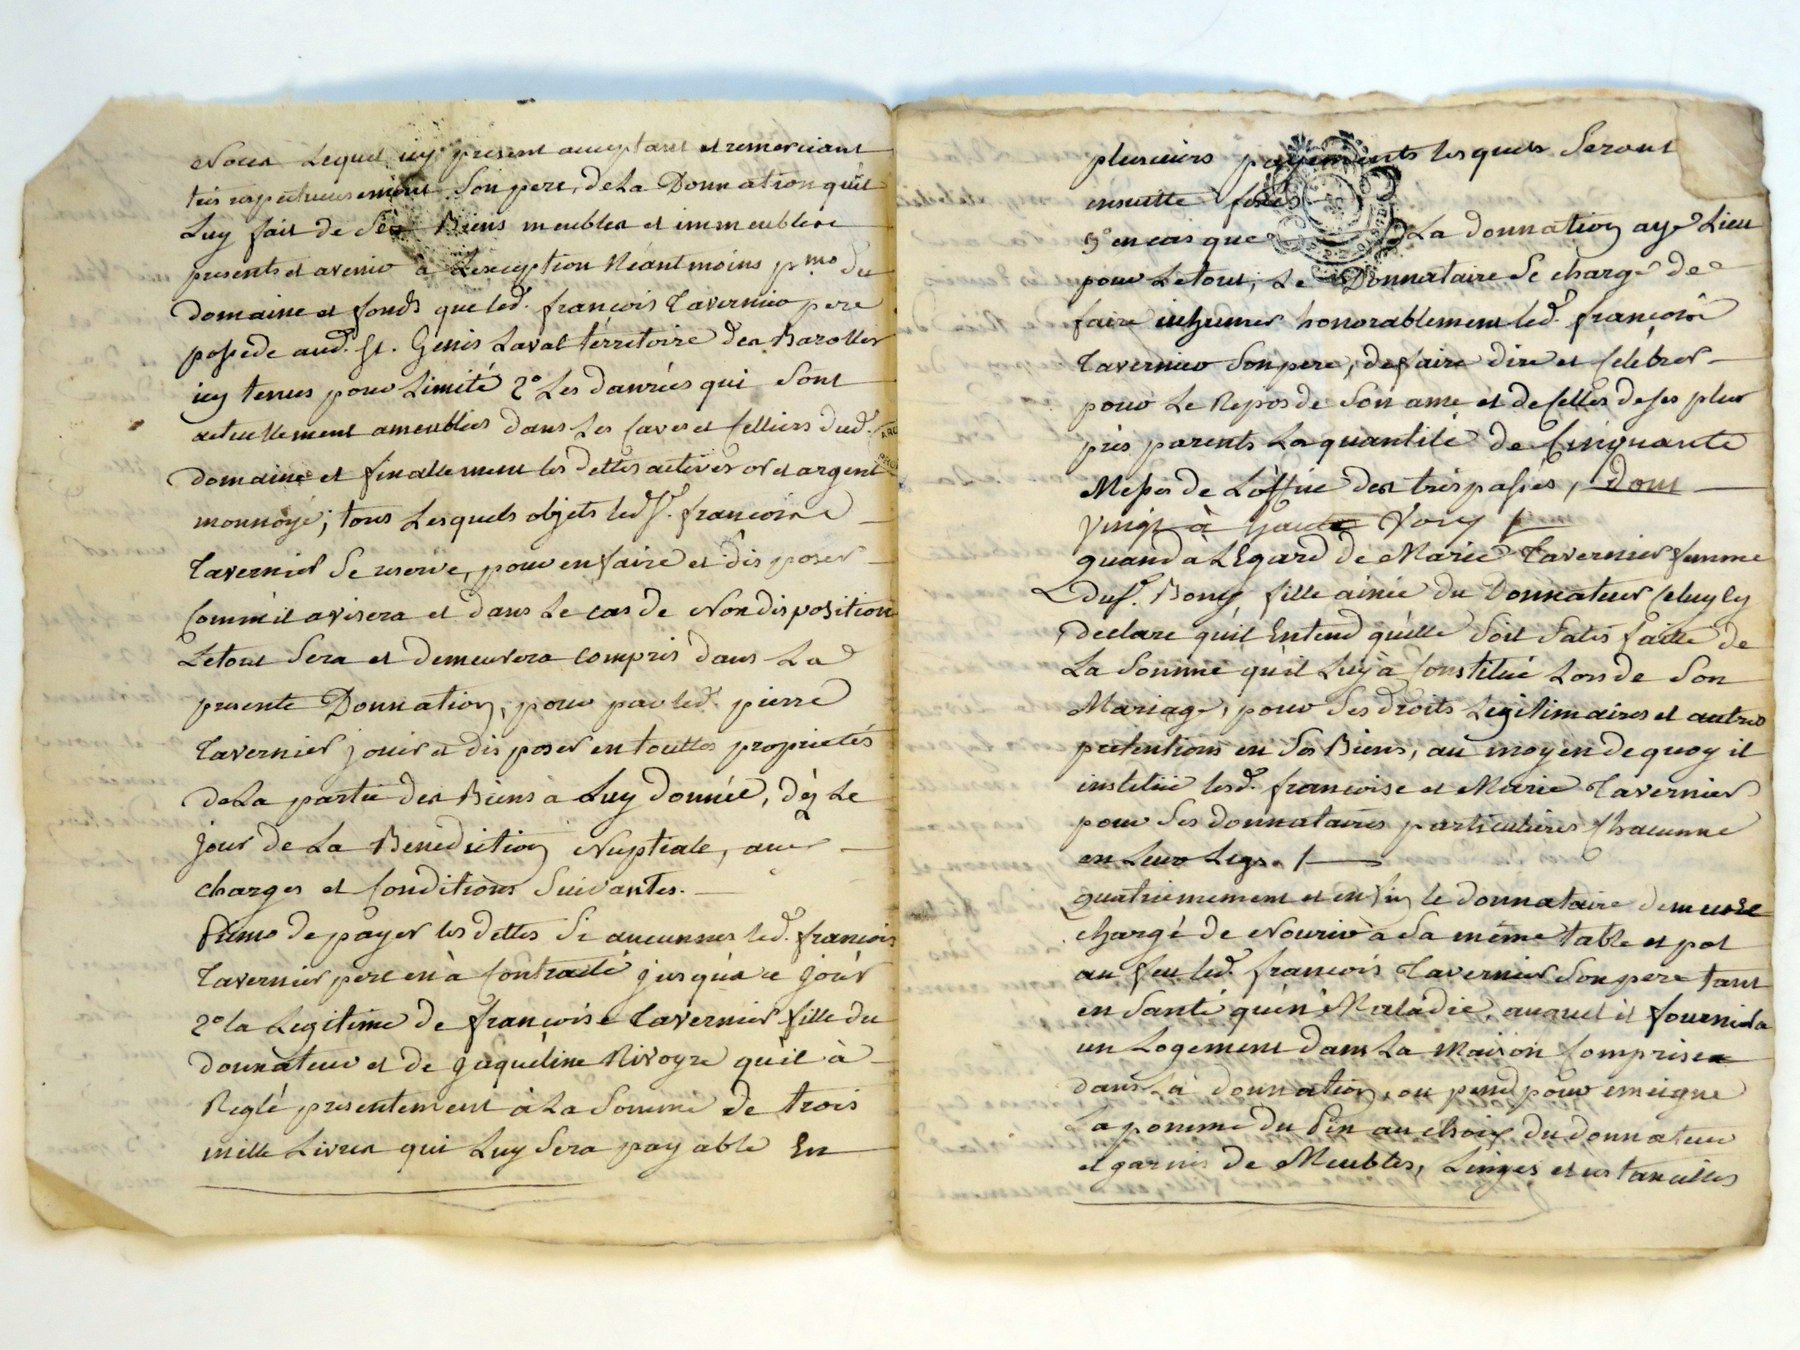 Noces Lequel icy present acceptant et remerciant
tres respectueusement Son pere, de La Donnation qu'il
Luy fait de Ses Biens meubles et immeubles
presents et avenir à L'exception Néantmoins p.mo du
domaine et fonds que led. françois Tavernier pere
possede aud. St. Genis Laval térritoire des Barolles
icy tenus pour Limité 2° Les danrées qui Sont
actuellement ameublies dans Les Caves et Celliers dud.
domaine et finallement les dettes actives or et argent
monnoyé; tous Lesquels objets led. Sr. françois
Tavernier Se reserve, pour en faire et disposer
Comm'il avisera et dans Le cas de Non disposition
Letout Sera et demeurera compris dans La
presente Donnation, pour par led. pierre
Tavernier jouir et disposer en touttes proprietés
de La partie des Biens à Luy donnée, dèz Le
jour de La Benediction Nuptiale, aux
charges et Conditions Suivantes.
Primo de payer les dettes Si aucunnes led. françois
Tavernier pere en à Contracté jusqu'a ce jour
2° la Legitime de françoise Tavernier fille du
donnateur et de jaqueline Rivoyre qu'il à
Reglé presentement à La Somme de trois
mille Livres qui Luy Sera payable En
plusieurs payements lesquels Seront
ensuitte fixés
3° en cas que La donnation aye Lieu
pour Le tout, Le Donnataire Se charge de
faire inhumer honorablement led. françois
Tavernier Son pere, de faire dire et Célébrer
pour Le Repos de Son ame et de Celles de Ses plus
près parents La quantité de Cinquante
Messes de L'office des trépassés, dont
vingt à haute Voix
quand à L'Egard de Marie Tavernier femme
du Sr. Bony fille ainée du Donnateur Celuy Cy
declare qu'il Entend qu'elle Soit Satis faitte de
La Somme qu'il Luy à Constitué Lors de Son
Mariage, pour Ses droits Legitimaires et autres
pretentions en Ses Biens, au moyen de quoy il
institüe lesd. françoise et Marie Tavernier
pour Ses donnataires particulieres Chacunne
en Leur Legs.
quatriemement et en fin le donnataire demeure
chargé de Nourir à Sa même table et pot
au feu led. françois Tavernier Son pere tant
en Santé qu'en Maladie, auquel il fournira
un Logement dans La Maison Comprise
dans La donnation, ou pend pour enseigne
La pomme du Pin au choix du donnateur
et garnis de Meubles, Linges et ustancilles